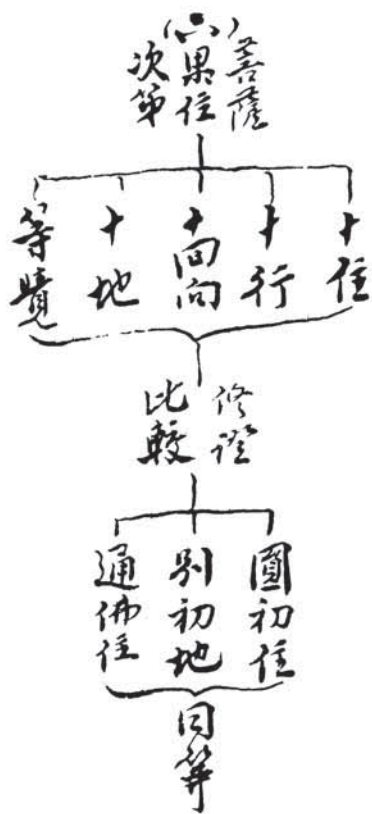 (六)
菩薩
果位
次第
十住
十行
十回向
十地
等覺
修證
比較
圓初住
別初地
通佛住
同等